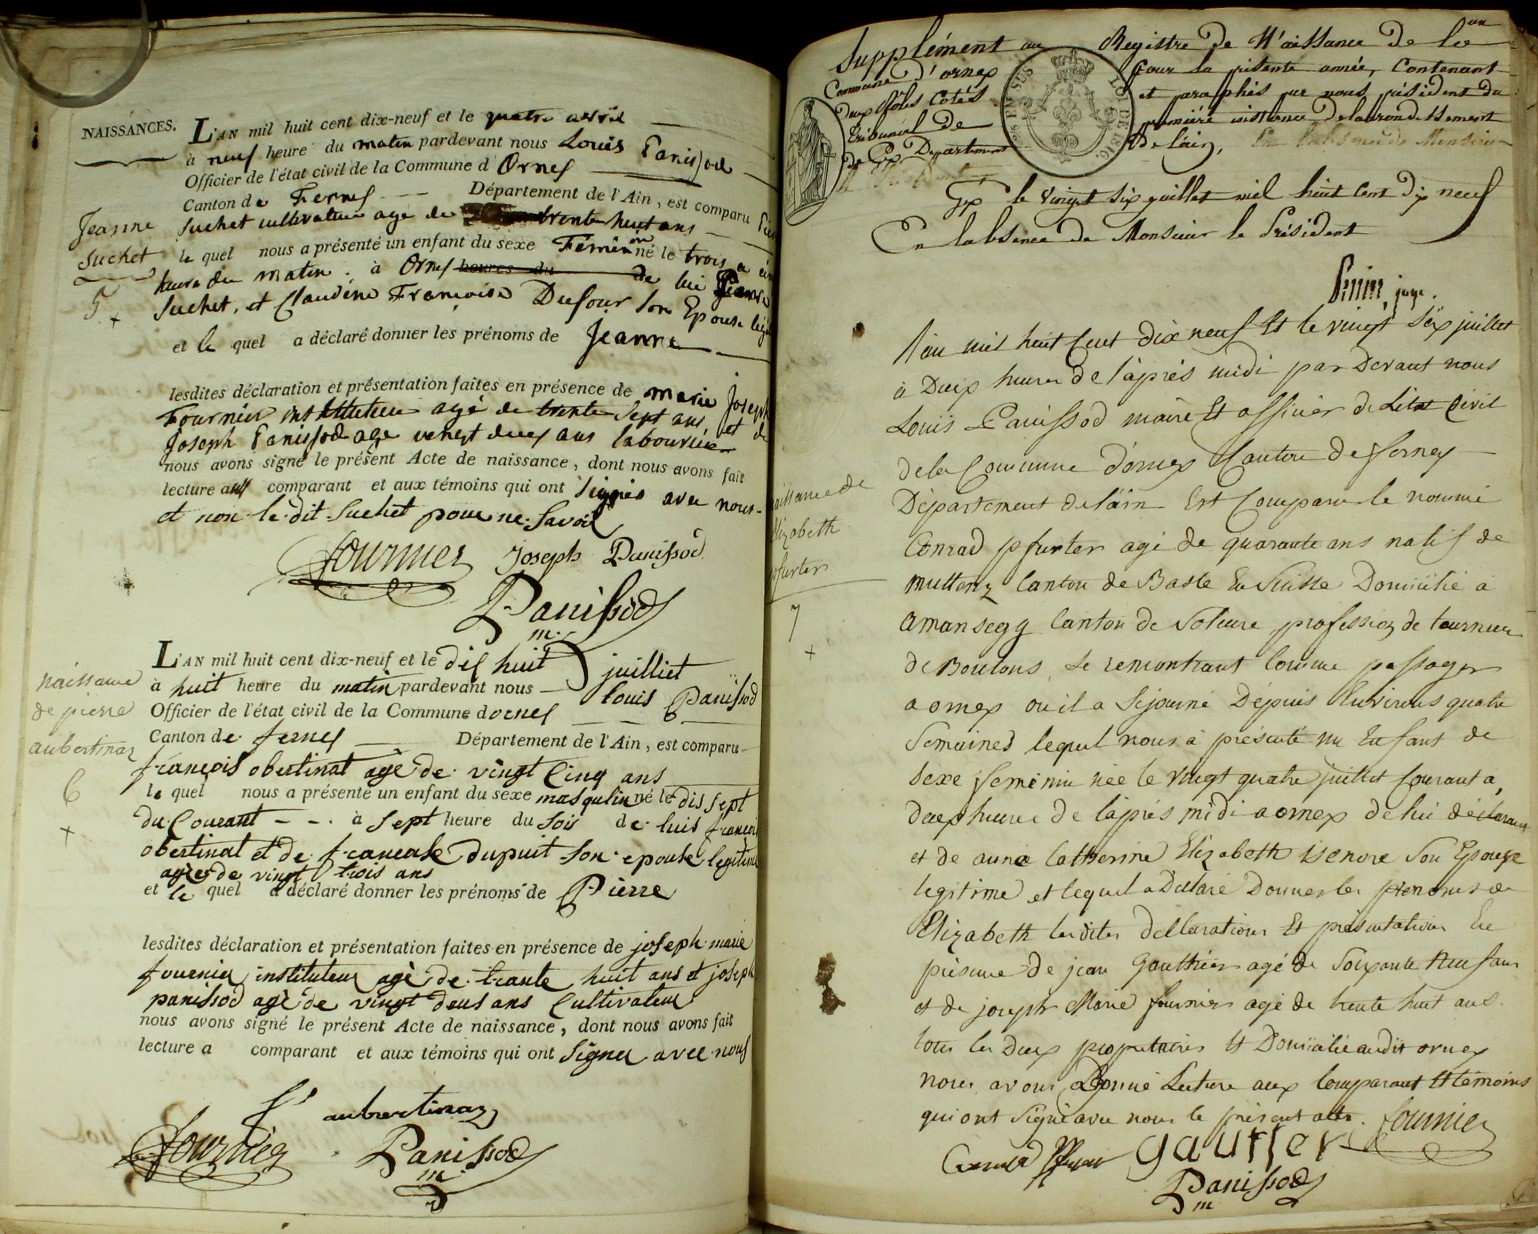 NAISSANCES.
L'AN mil huit cent dix-neuf et le quatre avril
à neuf heure du matin pardevant nous Louis Panissod
Officier de l'état civil de la Commune d Ornex
Canton de Fernex Département de l'Ain, est comparu
Suchet cultivateur age de trente huit ans
le quel nous a présenté un enfant du sexe Feminin né le trois a
heure du matin à Ornex heures du de lui
Suchet, et Claudine Francoise Dufour son Epouse
et le quel a déclaré donner les prénoms de Jeanne
lesdites déclaration et présentation faites en présence de marie Joseph
Fournier instituteur agé de trente sept ans, et de
Joseph Panissod age vengt deux ans laboureur
nous avons signé le présent Acte de naissance, dont nous avons fait
lecture aux comparant et aux témoins qui ont signés avec nous
et non le dit Suchet pour ne savoir
Jeanne
Suchet
5
+
fournier Joseph Panissod
Panissod
m.
L'AN mil huit cent dix-neuf et le dix huit juilliet
à huit heure du matin pardevant nous louis Panissod
Officier de l'état civil de la Commune dornex
Canton de fernex Département de l'Ain, est comparu
françois obertinat agé de vingt Cinq ans
le quel nous a présenté un enfant du sexe masqulin né le dis sept
du Courant à sept heure du soir de luis françois
obertinat et de francoise dupuit son epouse legitime
agée de vingt trois ans
et le quel a déclaré donner les prénoms de Pierre
lesdites déclaration et présentation faites en présence de joseph marie
fournier instituteur agé de trante huit ans et joseph
panissod agé de vingt deus ans Cultivateur
nous avons signé le présent Acte de naissance, dont nous avons fait
lecture a comparant et aux témoins qui ont signer avec nous
naissance
de pierre
aubertinaz
6
+
aubertinaz
fournier Panissod
m
Supplément au Registre de Naissance de la
Commune d'ornex pour la présente année, Contenant
Deux rôles Cotés et paraphés par nous président du
tribunal de première instance de l'arrondissement
de Gex Departement De l'ain,
Gex le vingt six juillet mil huit Cent dix neuf
En labsence de Monsieur le Président
juge.
l'an mil huit Cent dix neuf Et le vingt six juillet
à Deux heures de l'après midi par Devant nous
Louis Panissod maire Et officier de L'etat Civil
de la Commune d'ornex Canton de fernex
Département de l'ain Est Comparu le nommé
Conrad pfurter agé de quarante ans natif de
muttenz Canton de Basle En Suisse Domicilié à
amansegg Canton de Soleure profession de tourneur
de Boutons, se remontrant Comme passager
a ornex ou il a Séjourné Dépuis Environs quatre
Semaines lequel nous à présenté un Enfant de
sexe feminin née le vingt quatre juillet Courant a
deux heures de l'après midi a ornex de lui déclarant
et de anne Catherine Elizabeth Son Epouse
legitime et lequel a Déclaré Donner les prenoms de
Elizabeth lesdites déclarations Et présentations En
présence de jean Gauthier agé de Soixante Neuf ans
et de joseph Marie fournier agé de trente huit ans
tous les Deux propriétaires Et Domicilié audit ornex
nous avons Donné Lecture aux Comparant Et témoins
qui ont Signé avec nous le présent acte.
naissance de
Elizabeth
pfurter
7
+
fournier
Panissod
m